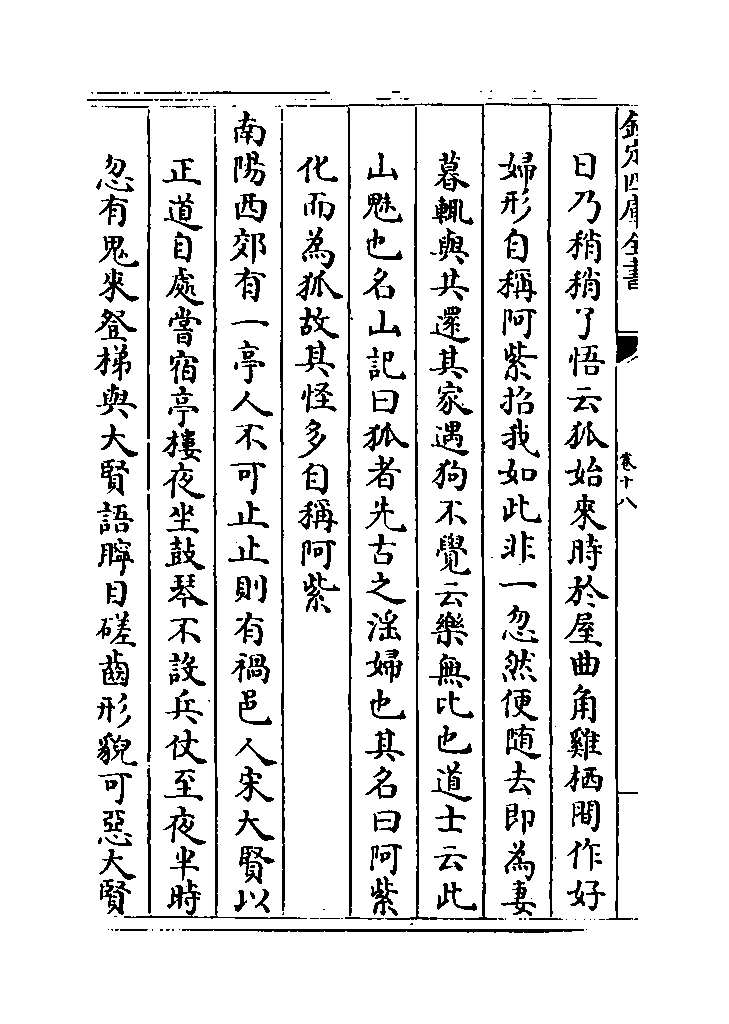 欽定四庫全書
卷十八
日乃稍稍了悟云狐始來時於屋曲角雞栖間作好
婦形自稱阿紫招我如此非一忽然便随去即為妻
暮輒與其還其家遇狗不覺云樂無比也道士云此
山魅也名山記曰狐者先古之淫婦也其名曰阿紫
化而為狐故其怪多自稱阿紫
南陽西郊有一亭人不可止止則有禍邑人宋大賢以
正道自處嘗宿亭樓夜坐鼓琴不設兵仗至夜半時
忽有鬼來登梯與大賢語矃目磋齒形貌可惡大賢